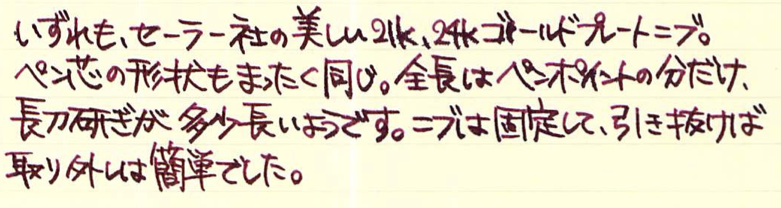 いずれも、セーラー社の美しい21k、24kゴールドプレートニブ。
ペン芯の形状もまったく同じ。全長はペンポイントの分だけ、
長刀研ぎが多少長いようです。ニブは固定して、引き抜けば
取り外しは簡単でした。